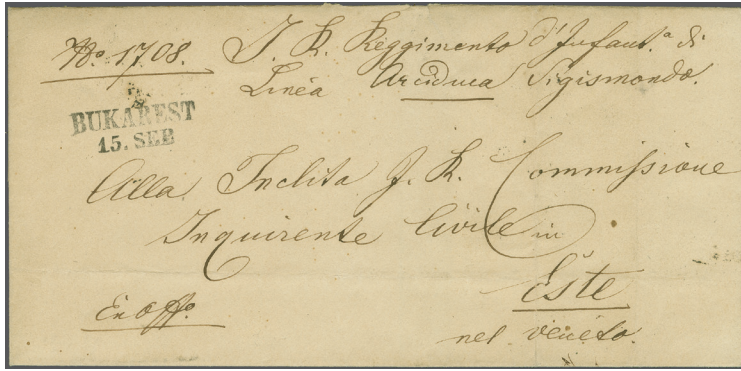 No. 1708. I. R. Reggimento d'Infant.a di
Linea Arciduca Sigismondo.
BUKAREST
15. SEB
Alla Inclita I. R. Commissione
Inquirente Civile in
Este
nel veneto.
Ex Offo.